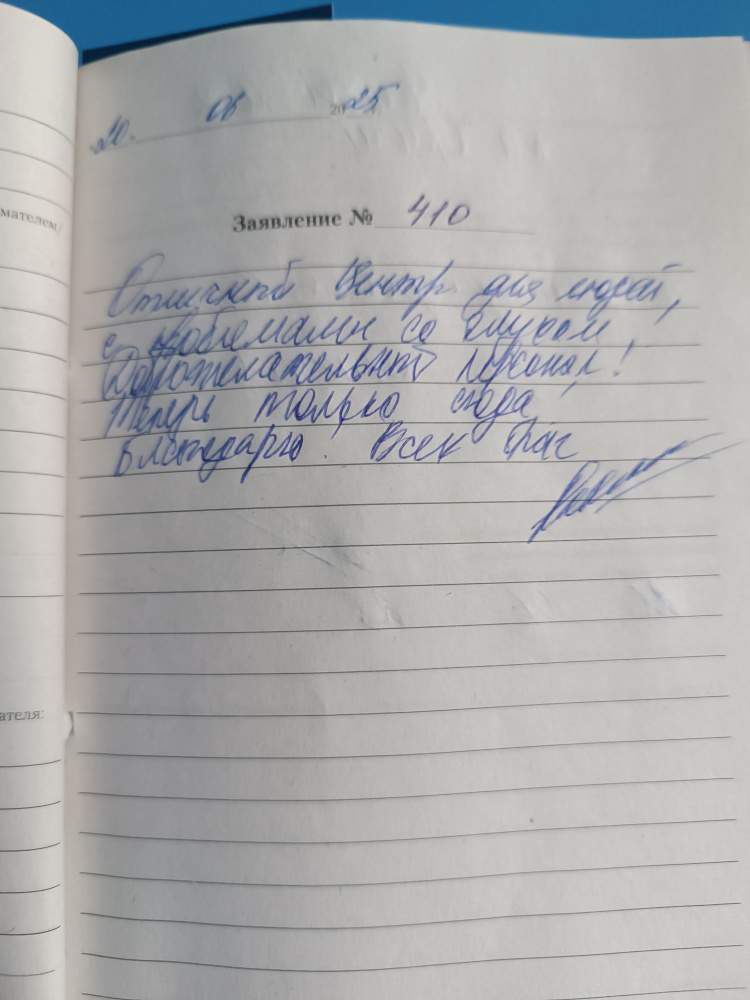 20. 06 2025
мателем/
Заявление № 410
Отличный Центр для людей,
с проблемами со слухом
Доброжелательный персонал!
Теперь только сюда!
Благодарю! Всех благ
ателя: